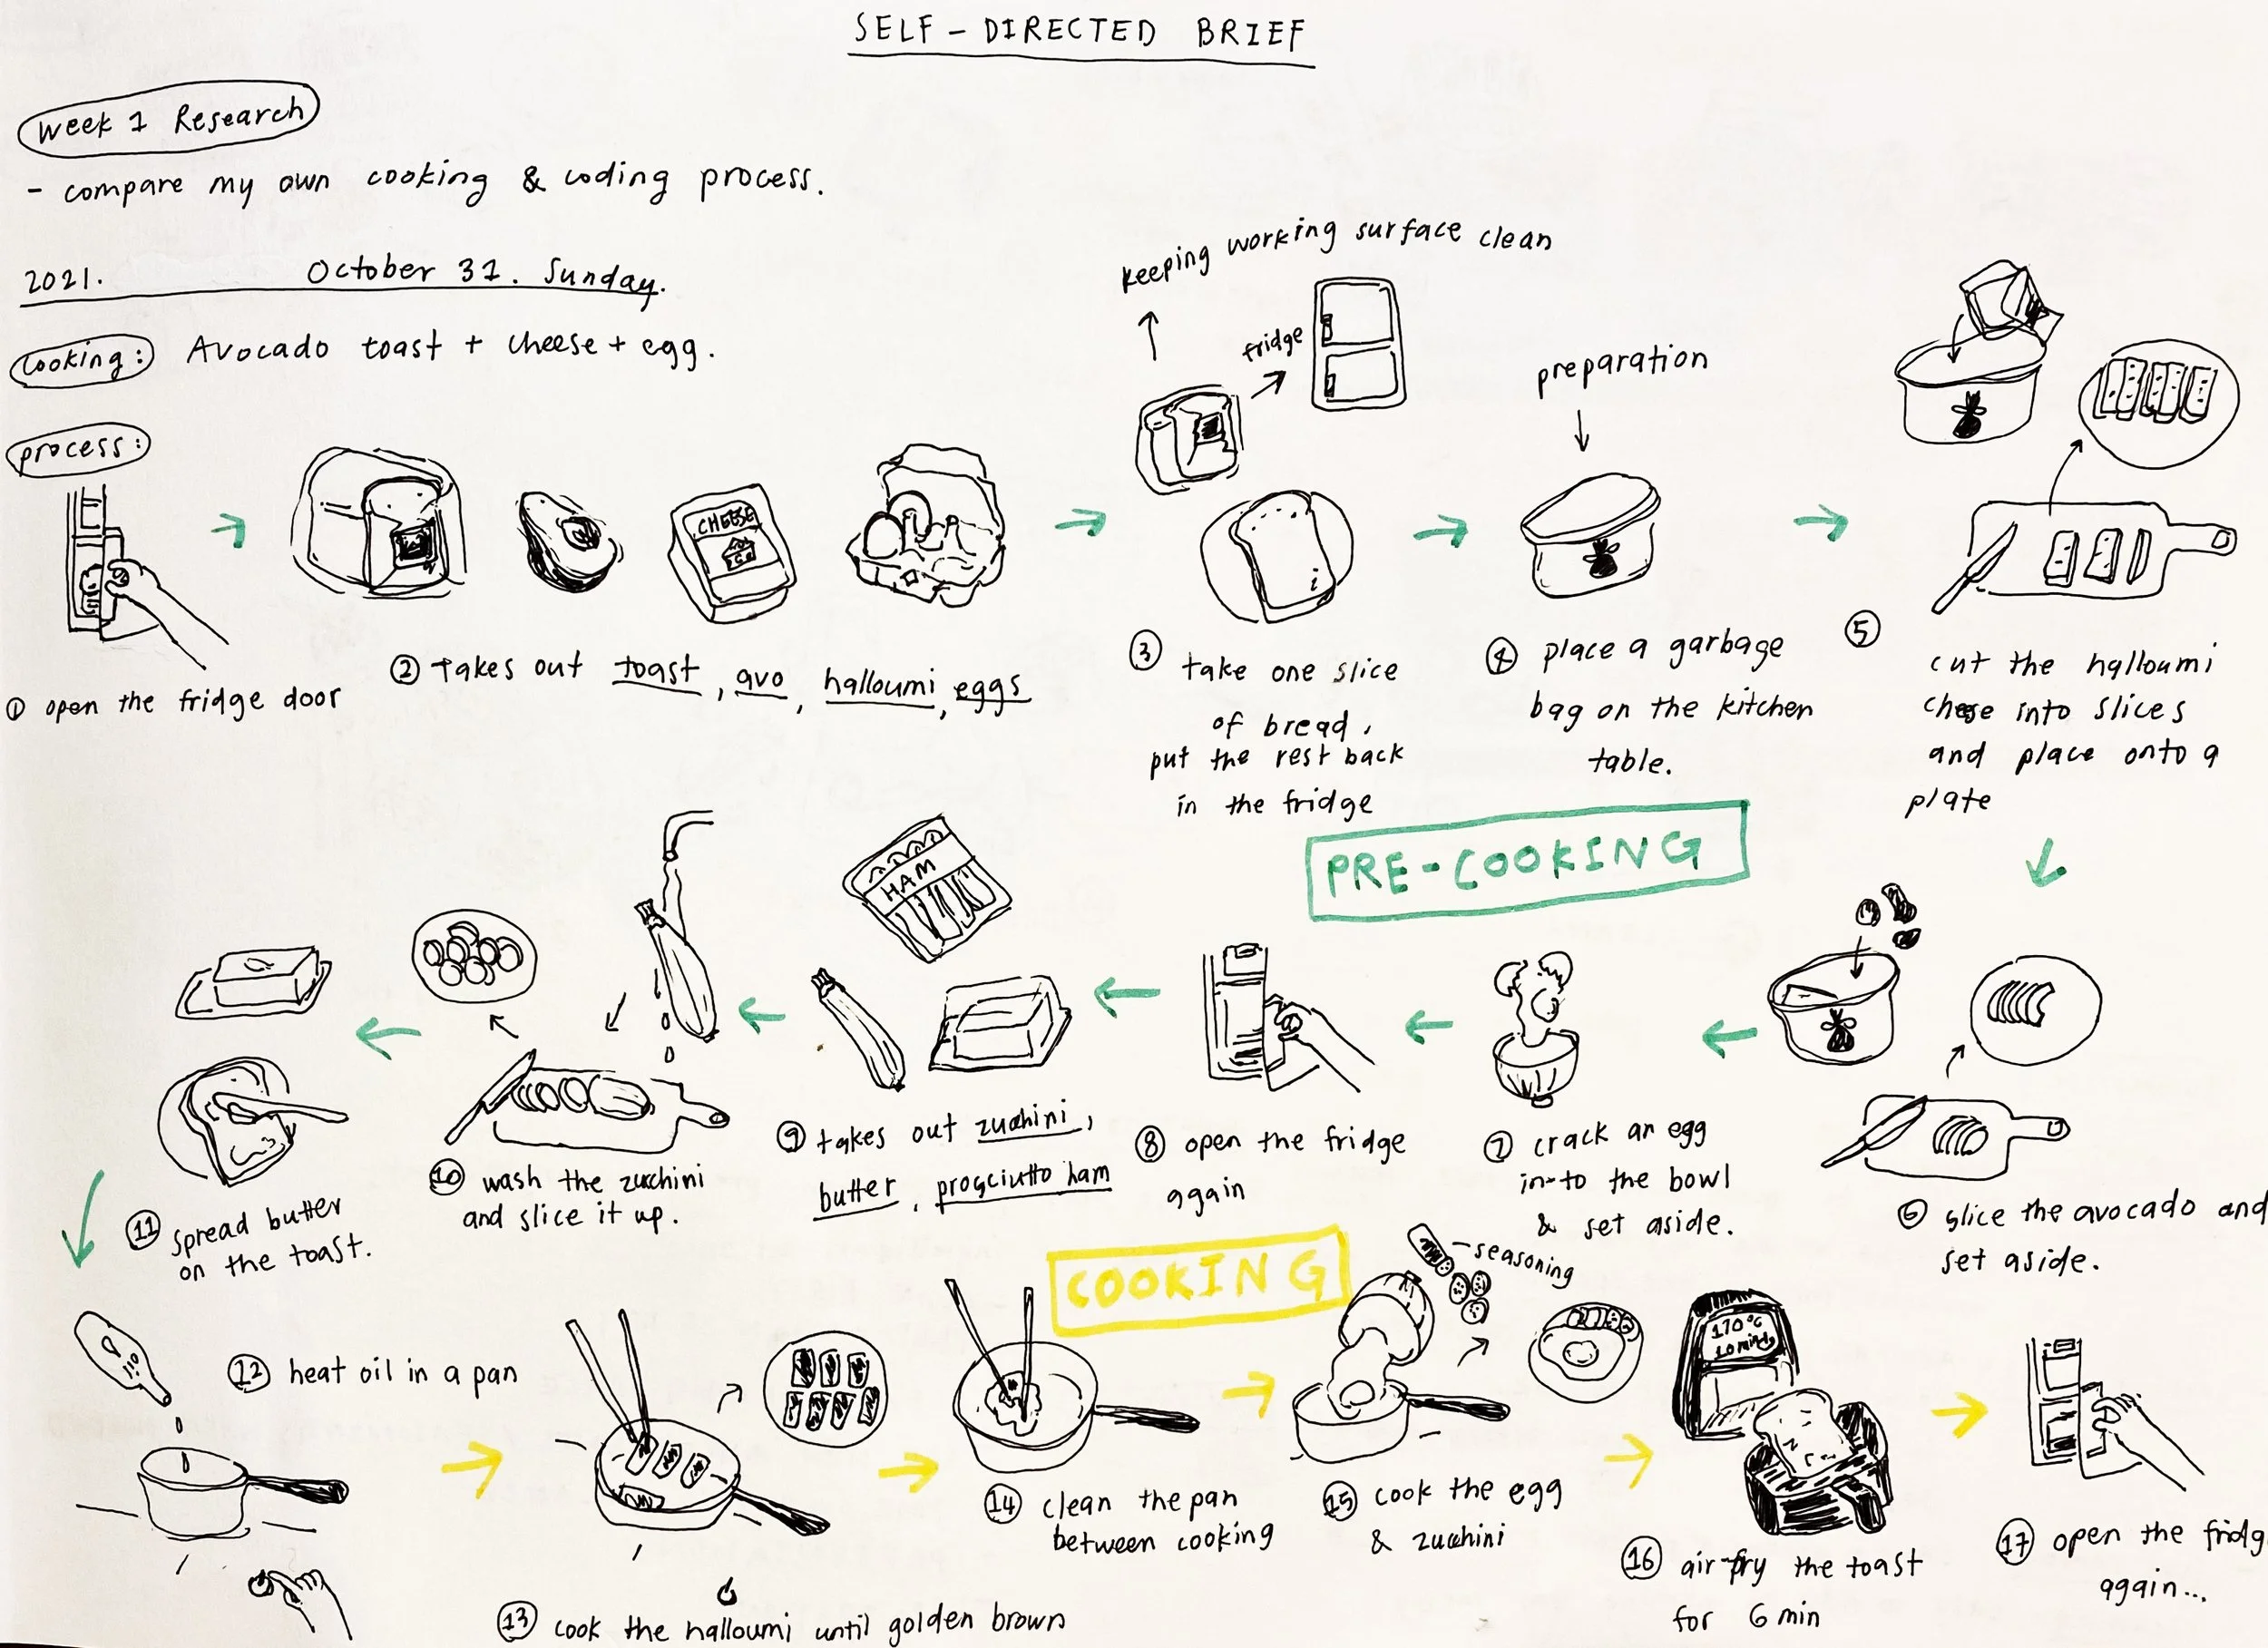 SELF-DIRECTED BRIEF
Week 1 Research
- compare my own cooking & coding process.
2021. October 31. Sunday.
Cooking: Avocado toast + cheese + egg.
process:
① open the fridge door
CHEESE
② Takes out toast, avo, halloumi, eggs
keeping working surface clean
fridge
③ take one slice
of bread,
put the rest back
in the fridge
preparation
④ place a garbage
bag on the kitchen
table.
⑤ cut the halloumi
cheese into slices
and place onto a
plate
PRE-COOKING
⑥ slice the avocado and
set aside.
⑦ crack an egg
in-to the bowl
& set aside.
⑧ open the fridge
again
HAM
⑨ takes out zucchini,
butter, prosciutto ham
⑩ wash the zucchini
and slice it up.
⑪ spread butter
on the toast.
COOKING
⑫ heat oil in a pan
⑬ cook the halloumi until golden brown
⑭ clean the pan
between cooking
seasoning
⑮ cook the egg
& zucchini
170°C
10 mins
⑯ air-fry the toast
for 6 min
⑰ open the fridg
again...